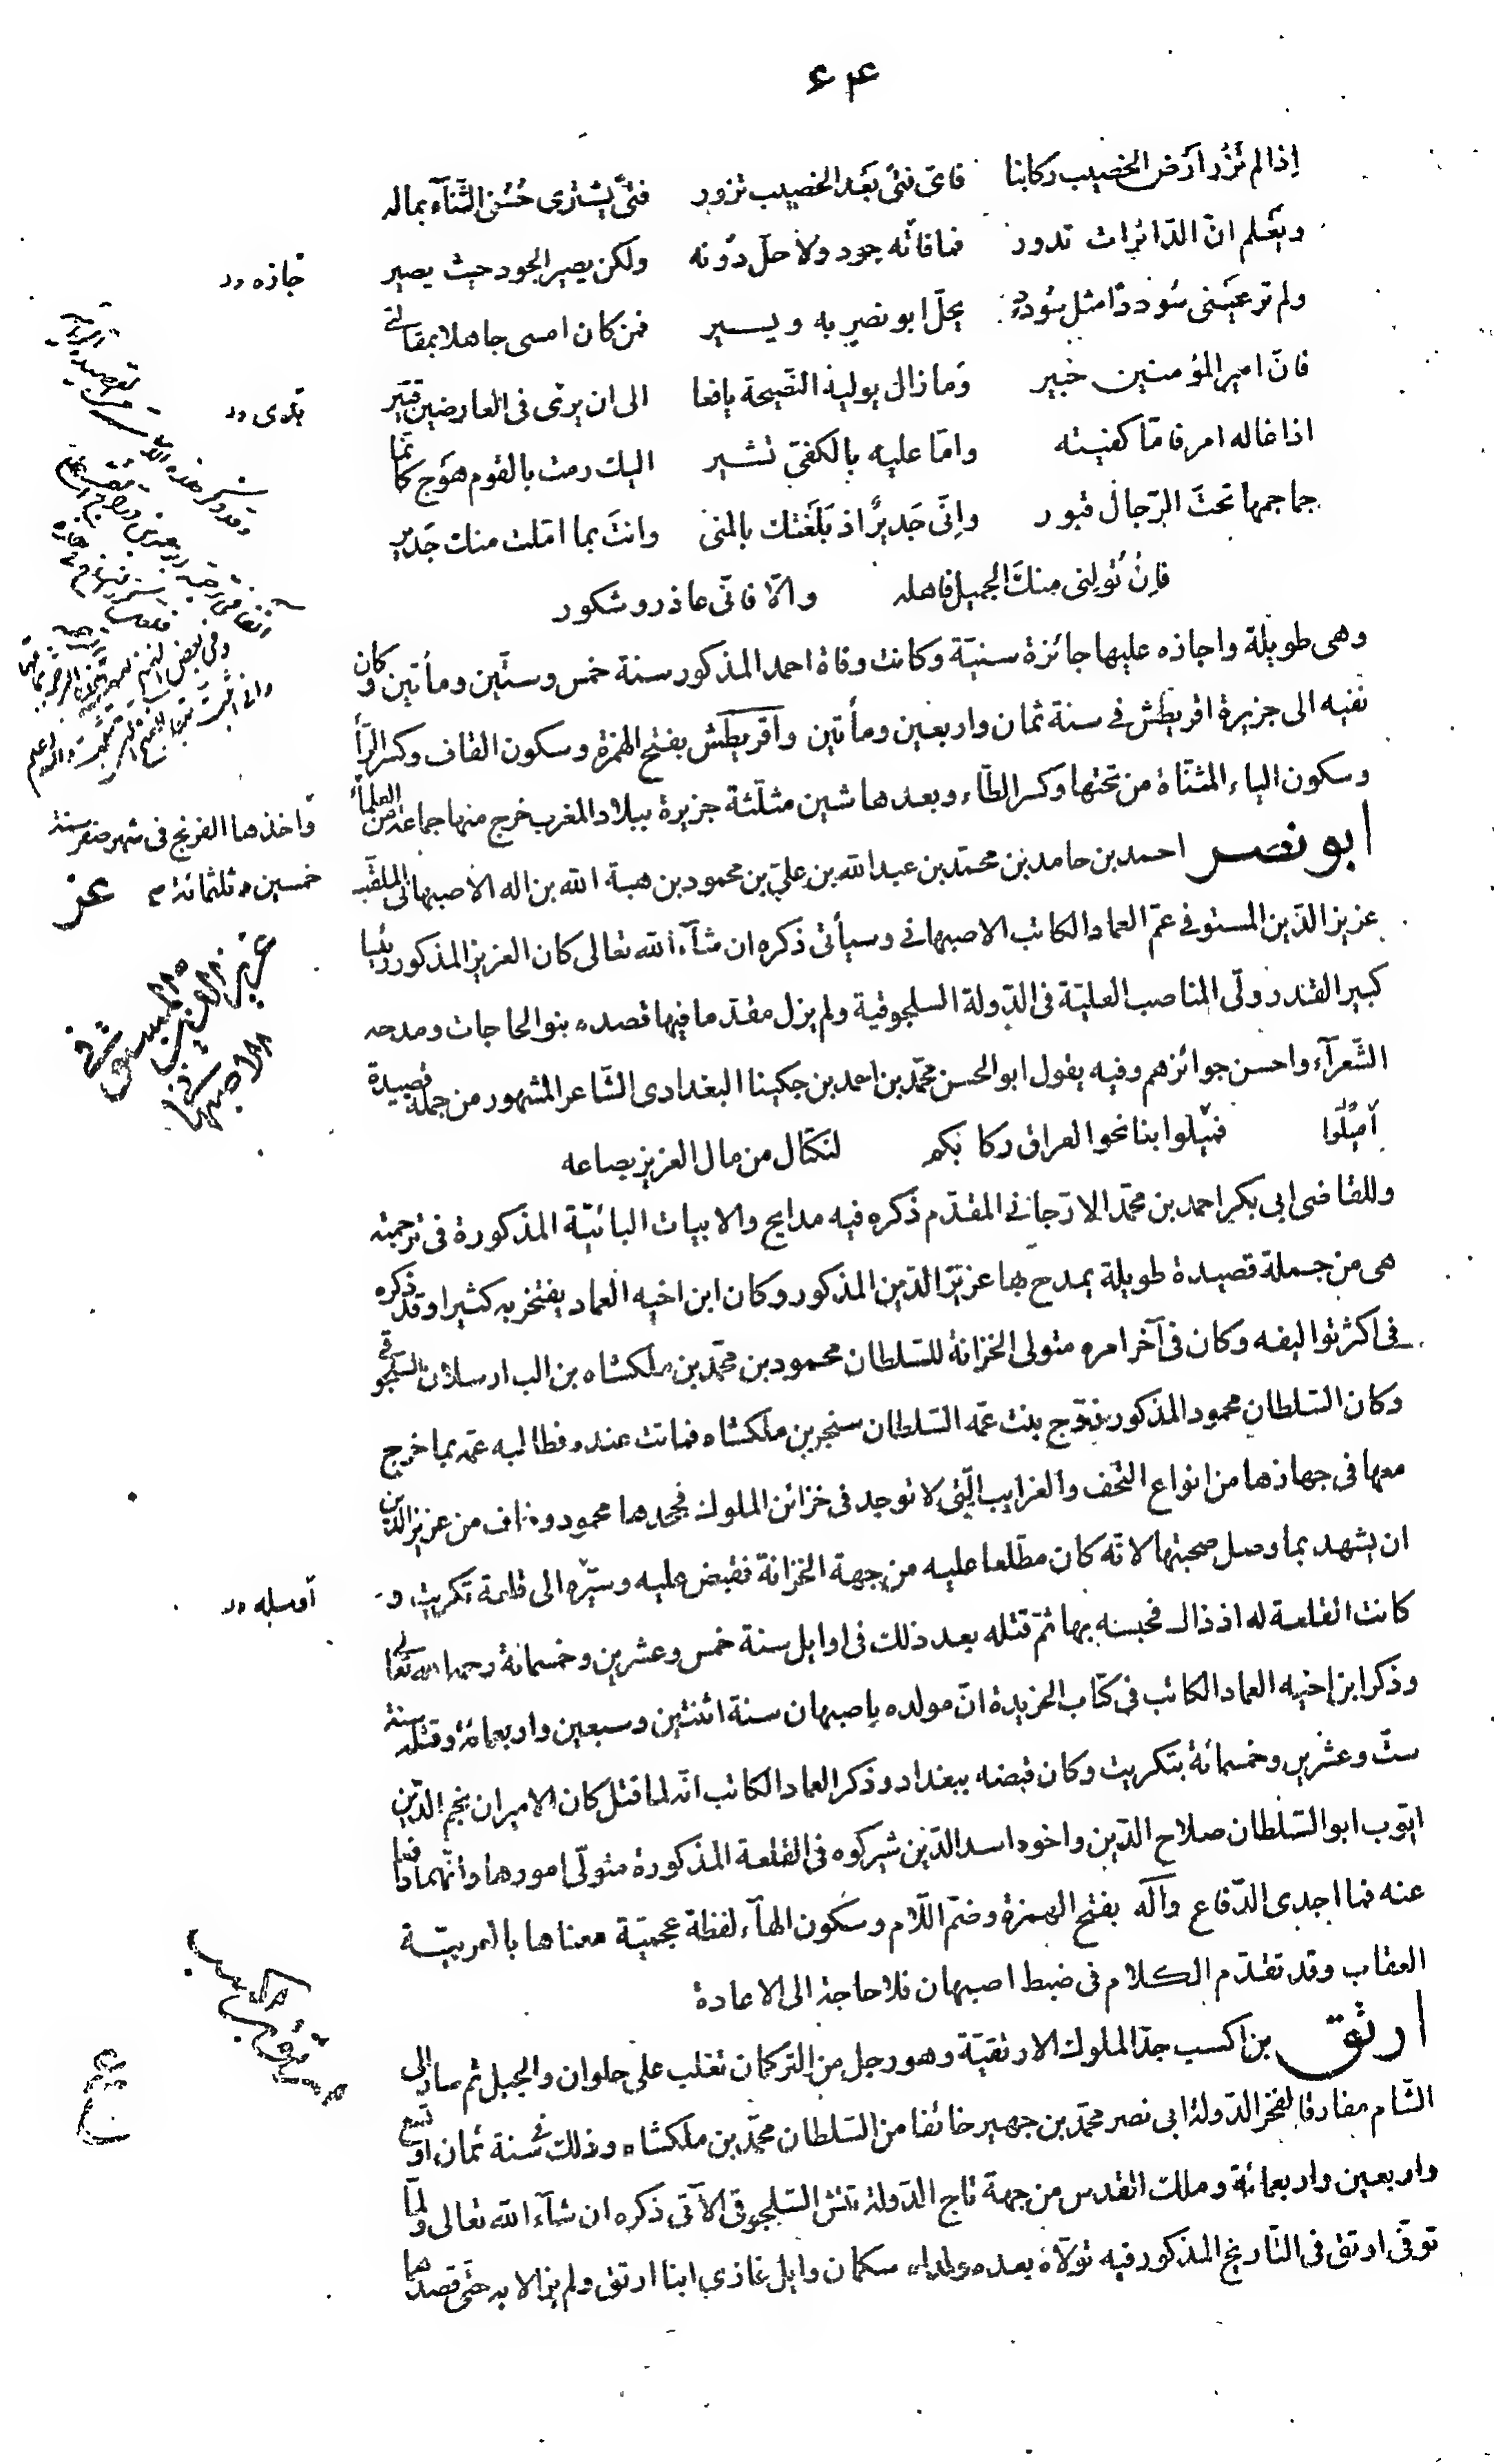 ۶۴
اِذا لم تَزُر اَرضَ الخصيب ركابنا فاىّ فتىً بَعد الخصيب تزور فتىً يَشترى حُسْنَ الثّناء بماله
ويَعلم انّ الدّائرات تدور فما فاته جود ولا حلّ دُونه ولكن يصير الجود حيث يصير
جازه
ولم ترعَينى سُوددًا مثل سُودد يحلّ ابو نصرٍ به ويسير فمن كان امسى جاهلا بمقالتى
فانّ امير المؤمنين خبير وَما زال يوليه النّصيحة يافعا الى ان يرى فى العارضين قتير
اذا غاله امر فامّا كفيته وامّا عليه بالكفىّ تشير اليك رمت بالقوم هوَج كأنّما
جماجمها تحتَ الرّحال قبور وانّى جَديرٌ اذ بَلَغتك بالمنى وانتَ بما امّلت منك جَدير
فاِنْ تُولِنى منكَ الجميل فاهله والّا فانّى عاذر وشكور
وهى طويلة واجازه عليها جائزة سنيّة وكانت وفاة احمد المذكور سنة خمس وستّين ومأتين وكان
نفيه الى جزيرة اقريطش فى سنة ثمان واربعين ومأتين واقريطش بفتح الهمزة وسكون القاف وكسر الرّاء
وسكون الياء المثنّاة من تحتها وكسر الطّاء وبعدها شين مثلّثة جزيرة ببلاد المغرب خرج منها جماعة من العلماء
واخذها الفرنج فى شهر صفر سنة
خمسين وثلثمائة
ابو نصر احمد بن حامد بن محمّد بن عبد الله بن علىّ بن محمود بن هبة الله بن اله الاصبهانى الملقّب
عزيز الدّين المستوفى عمّ العماد الكاتب الاصبهانى وسيأتى ذكره ان شآء الله تعالى كان العزيز المذكور رئيسا
عزيز الدين المستوفى
الاصبهانى
كبير القدر ولّى المناصب العليّة فى الدّولة السلجوقية ولم يزل مقدّما فيها قصده بنو الحاجات ومدحه
الشّعرآء واحسن جوائزهم وفيه يقول ابو الحسن محمّد بن احمد بن جكينا البغدادى الشّاعر المشهور من جملة قصيدة
اَميلُوا فميلوا بنا نحو العراق ركابكم لنكتال من مال العزيز بصاعه
وللقاضى ابى بكر احمد بن محمّد الارّجانى المقدّم ذكره فيه مدايح والابيات البائيّة المذكورة فى ترجمته
هى من جملة قصيدة طويلة يمدح بها عزيز الدّين المذكور وكان ابن اخيه العماد يفتخر به كثيرا وقد ذكره
فى اكثر تواليفه وكان فى آخر امره متولى الخزانة للسّلطان محمود بن محمّد بن ملكشاه بن الب ارسلان السّلجوقى
وكان السّلطان محمود المذكور تزوّج بنت عمّه السّلطان سنجر بن ملكشاه فماتت عنده فطالبه عمّه بما خرج
معها فى جهازها من انواع التّحف والغرايب الّتى لا توجد فى خزائن الملوك فجحدها محمود وخاف من عزيز الدّين
ان يشهد بما وصل صحبتها لانّه كان مطّلعا عليه من جهة الخزانة فقبض عليه وسيّره الى قلعة تكريت و
كانت القلعة له اذ ذاك فحبسه بها ثمّ قتله بعد ذلك فى اوايل سنة خمس وعشرين وخمسمائة رحمه الله تعالى
وذكر ابن اخيه العماد الكاتب فى كتاب الخريدة انّ مولده باصبهان سنة اثنتين وسبعين واربعمائة وقتله سنة
ستّ وعشرين وخمسمائة بتكريت وكان قبضه ببغداد وذكر العماد الكاتب انّه لما قتل كان الاميران نجم الدّين
ايّوب ابو السّلطان صلاح الدّين واخوه اسد الدّين شيركوه فى القلعة المذكورة متولّى امورها وانّهما دافعا
عنه فما اجدى الدّفاع وآله بفتح الهمزة وضمّ اللّام وسكون الهآء لفظة عجميّة معناها بالعربيّة
العقاب وقد تقدّم الكلام فى ضبط اصبهان فلا حاجة الى الاعادة
ارتق بن اكسب جدّ الملوك الارتقيّة وهو رجل من التركمان تغلب على حلوان والجبل ثم سار الى
الشّام مفارقا لفخر الدّولة ابى نصر محمّد بن جهير خائفا من السّلطان محمّد بن ملكشاه وذلك فى سنة ثمان او تسع
واربعين واربعمائة وملك القدس من جهة تاج الدّولة تتش السّلجوقى الآتى ذكره ان شآء الله تعالى ولمّا
توفّى ارتق فى التّاريخ المذكور فيه تولّاه بعده ولداه سكمان وايل غازي ابنا ارتق ولم يزالا به حتّى قصدهما